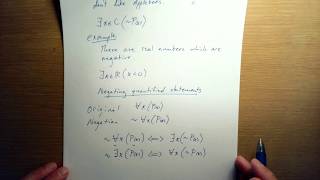 don't like appletrees.
∃x∈C(~P(x))
Example
There are real numbers which are
negative.
∃x∈ℝ(x<0)
Negating quantified statements
Original ∀x(P(x))
Negation ~∀x(P(x))
~∀x(P(x)) ⟺ ∃x(~P(x))
~∃x(P(x)) ⟺ ∀x(~P(x))